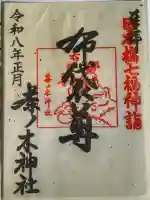 奉拝
七福神詣
布袋尊
茶ノ木神社
令和八年正月